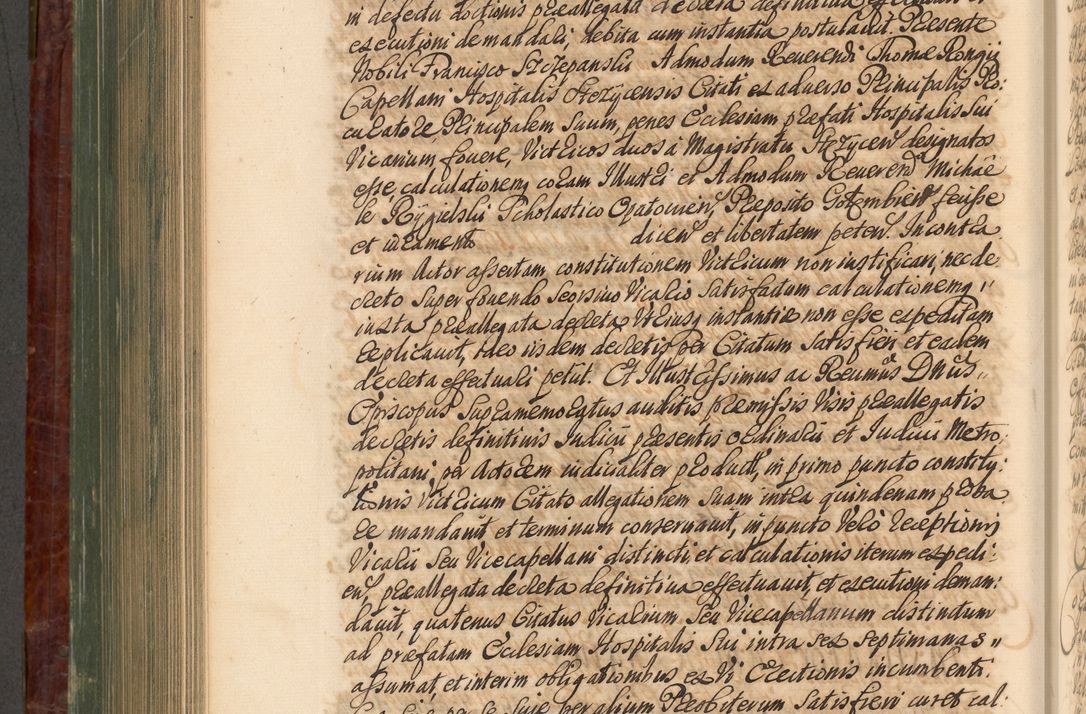 in defectu doctionis præallegata decreta definitiva effectuari et
executioni demandari, debita cum instantia postulavit. Præsente
Nobili Francisco Szczepanski Admodum Reverendi Thomæ Rongij
Capellani Hospitalis Stezycensis Citati ex adverso Principalis Pro:
curatore Principalem Suum, penes Ecclesiam præfati Hospitalis Sui
Vicarium fovere, Vitricos duos à Magistratu Stezycen designatos
esse, calculationemq coram Illustri et Admodum Reverend Michae
le Rygielski Scholastico Opatovien, Præposito Gołembien fecisse
et iurament dicen et libertatem peten. In contra
rium Actor assertam constitutionem Vitricum non iustificari, nec de
creto super fovendo seorsivo Vicario Satisfactum calculationemq "
iuxta præallegata decreta Utriusq instantiæ non esse expeditam
replicavit, ideo iisdem decretis per Citatum Satisfieri et eadem
decreta effectuari petiit. Et Illustrissimus ac Reumus Dnus "
Episcopus Supramemoratus auditis præmissis Visis præallegatis
decretis definitivis Iudicii præsentis ordinarii et Iudicii Metro:
politani per Actorem iudicialiter product, in primo puncto constitu:
tionis Vitricum Citato allegationem Suam intra quindenam proba
re mandavit et terminum conservavit, in puncto Verò receptionis
Vicarii Seu Vicecapellani distincti, et calculationis iterum expedi:
en, præallegata decreta definitiva effectuavit, et executioni deman:
davit, quatenus Citatus Vicarium Seu Vicecapellanum distinctum
ad præfatam Ecclesiam Hospitalis Sui intra sex septimanas "
assumat et interim obligationibus ex Vi Erectionis incumbenti:
per se Sive per alium Presbiterum Satisfieri curet cal: